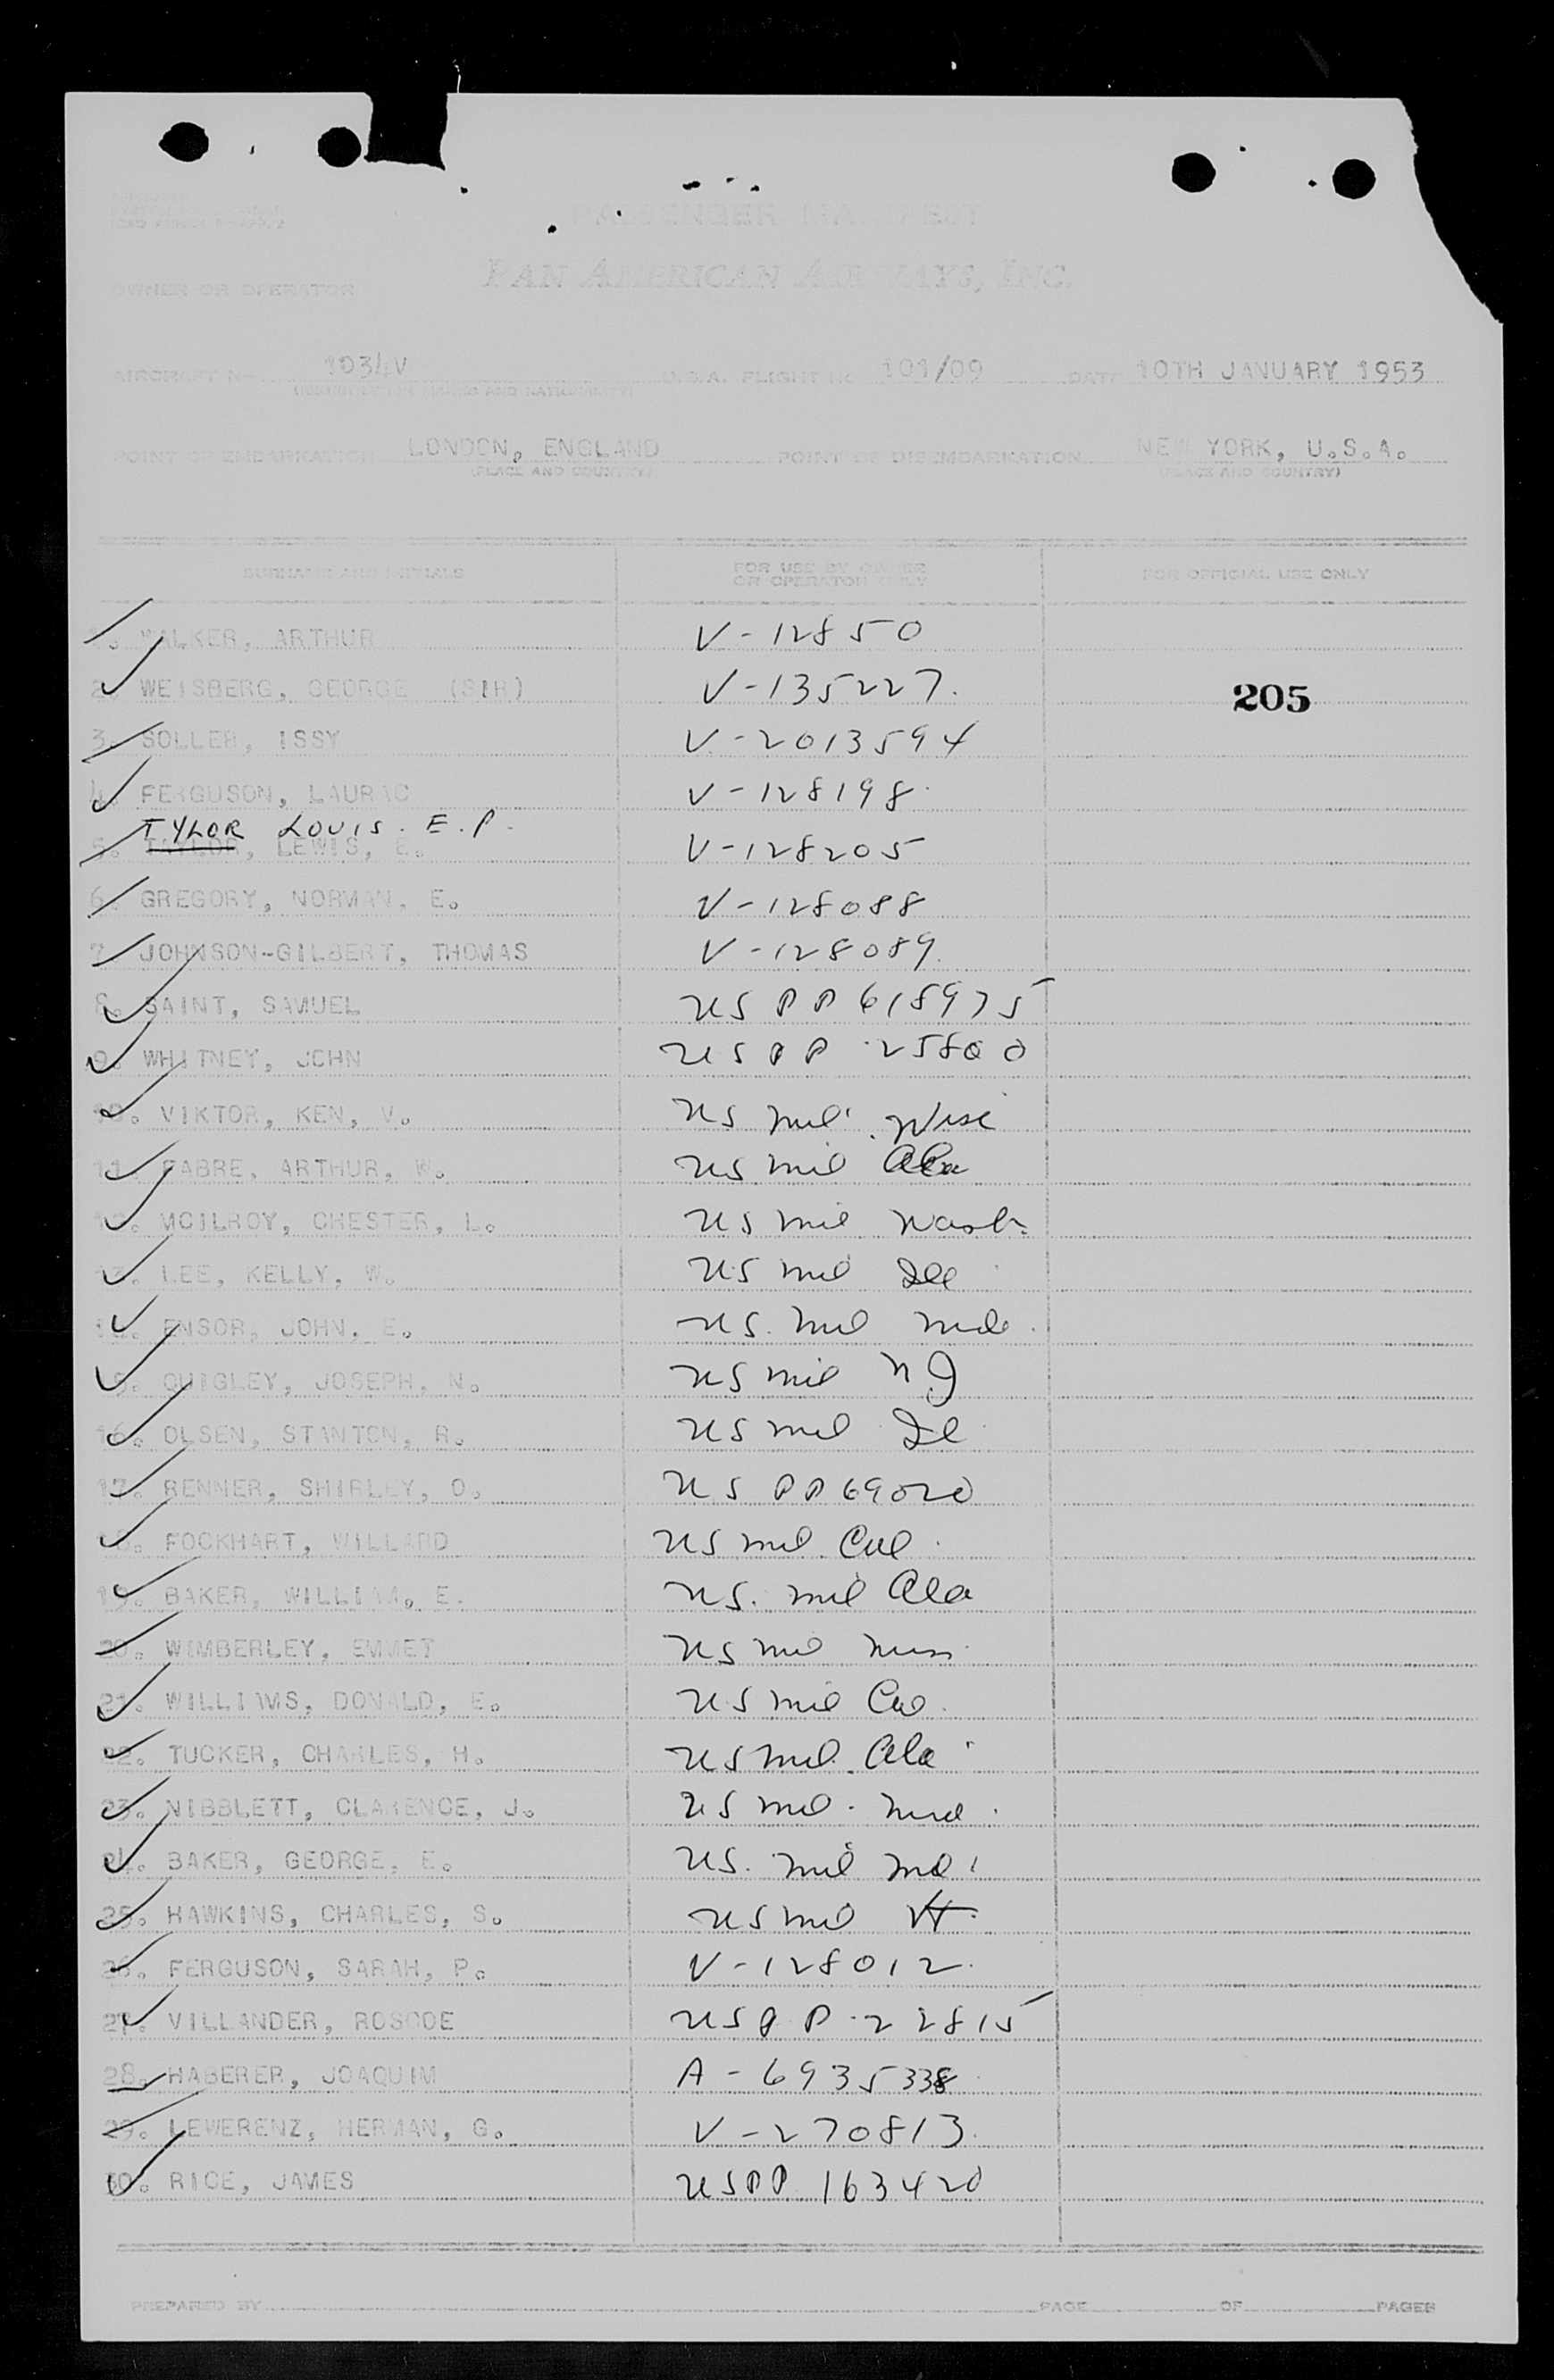 PASSENGER MANIFEST
PAN AMERICAN AIRWAYS, INC.
OWNER OR OPERATOR
AIRCRAFT No. 1034V U.S.A. FLIGHT No. 101/09 DATE 10TH JANUARY 1953
POINT OF EMBARKATION LONDON, ENGLAND POINT OF DISEMBARKATION NEW YORK, U.S.A.
(PLACE AND COUNTRY) (PLACE AND COUNTRY)
SURNAME AND INITIALS FOR USE BY OWNER OR OPERATOR ONLY FOR OFFICIAL USE ONLY
1. WALKER, ARTHUR V-12850
2. WEISBERG, GEORGE (SIR) V-135227.
205
3. SOLLER, ISSY V-2013594
4. FERGUSON, LAURAC V-128198.
TYLOR LOUIS. E.P.
5. TAYLOR, LEWIS, E. V-128205
6. GREGORY, NORMAN, E. V-128088
7. JOHNSON-GILBERT, THOMAS V-128089.
8. SAINT, SAMUEL US PP 618975
9. WHITNEY, JOHN US PP 25800
10. VIKTOR, KEN, V. US mil. Wisc
11. FABRE, ARTHUR, W. US mil Ala
12. MCILROY, CHESTER, L. US mil Wash.
13. LEE, KELLY, W. US mil Ill
14. ENSOR, JOHN, E. US. mil
15. QUIGLEY, JOSEPH, N. US mil NJ
16. OLSEN, STANTON, R. US mil Il
17. RENNER, SHIRLEY, O. US PP 69020
18. FOCKHART, WILLARD US mil Cal.
19. BAKER, WILLIAM, E. US. mil Ala
20. WIMBERLEY, EMMET US mil Miss.
21. WILLIAMS, DONALD, E. US mil Cal.
22. TUCKER, CHARLES, H. US mil. Ala
23. NIBBLETT, CLARENCE, J. US mil.
24. BAKER, GEORGE, E. US. mil Md.
25. HAWKINS, CHARLES, S. US mil Vt.
26. FERGUSON, SARAH, P. V-128012.
27. VILLANDER, ROSCOE US PP. 22815
28. HABERER, JOAQUIM A-6935338
29. LEWERENZ, HERMAN, G. V-270813.
30. RICE, JAMES US PP 163420
PREPARED BY PAGE OF PAGES